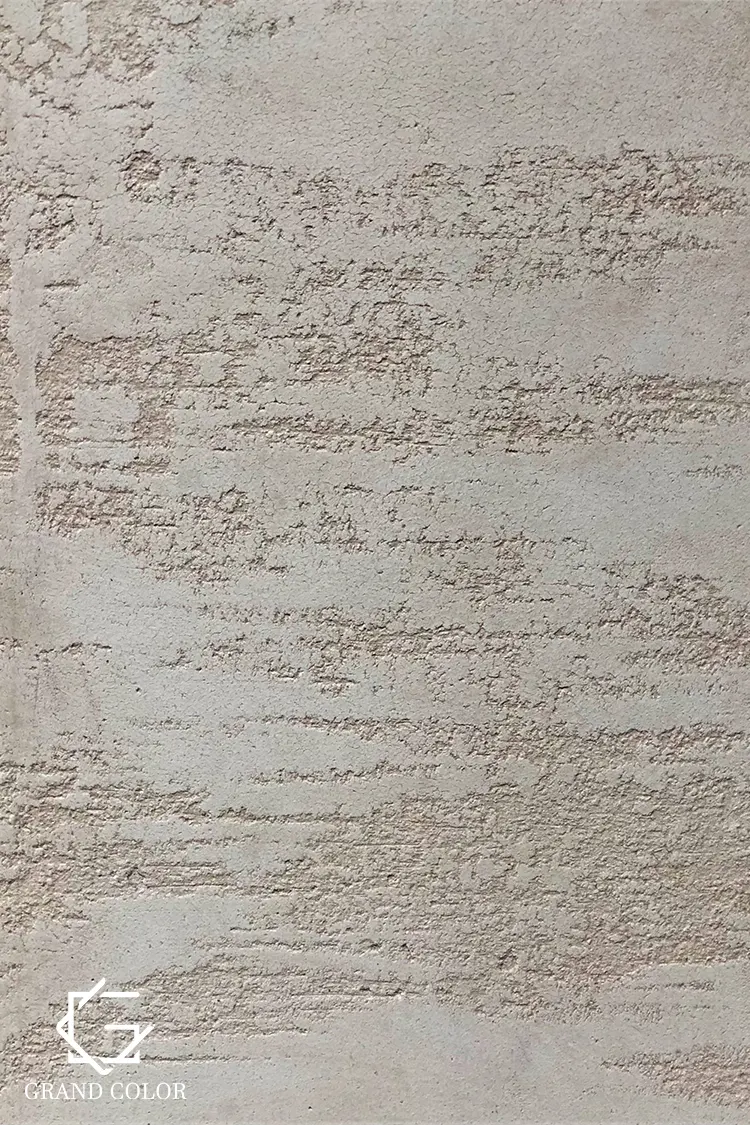 GRAND COLOR